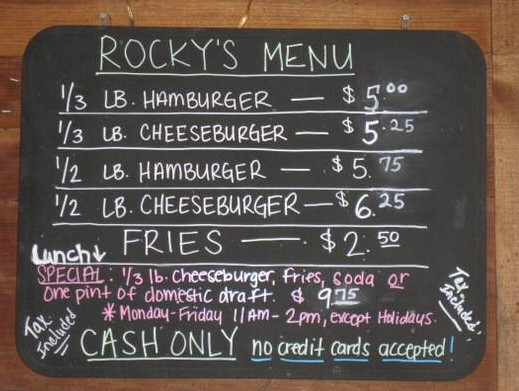 ROCKY'S MENU
1/3 LB. HAMBURGER — $5.00
1/3 LB. CHEESEBURGER — $5.25
1/2 LB. HAMBURGER — $5.75
1/2 LB. CHEESEBURGER — $6.25
FRIES — $2.50
Lunch↓
SPECIAL: 1/3 lb. Cheeseburger, Fries, Soda or
One pint of domestic draft. $ 9.75
* Monday-Friday 11AM-2pm, except Holidays.
Tax Included
Tax Included!
CASH ONLY no credit cards accepted!